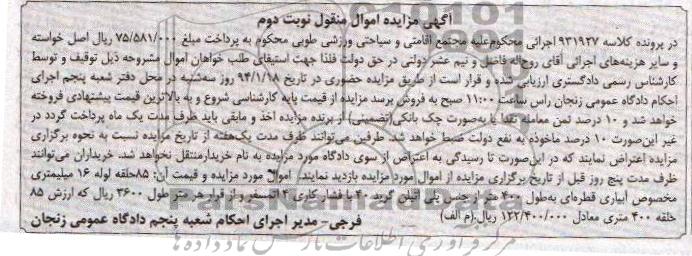 آگهی مزایده اموال منقول نوبت دوم
در پرونده کلاسه ۹۳۱۹۲۷ اجرائی محکوم‌علیه مجتمع اقامتی و سیاحتی ورزشی طوبی محکوم به پرداخت مبلغ ۷۵/۵۸۱/۰۰۰ ریال اصل خواسته
و سایر هزینه‌های اجرائی آقای روح‌اله فاضل و نیم عشر دولتی در حق دولت فلذا جهت استیفای طلب خواهان اموال مشروحه ذیل توقیف و توسط
کارشناس رسمی دادگستری ارزیابی شده و قرار است از طریق مزایده حضوری در تاریخ ۹۴/۱/۱۸ روز سه‌شنبه در محل دفتر شعبه پنجم اجرای
احکام دادگاه عمومی زنجان راس ساعت ۱۱:۰۰ صبح به فروش برسد مزایده از قیمت پایه کارشناسی شروع و به بالاترین قیمت پیشنهادی فروخته
خواهد شد و ۱۰ درصد ثمن معامله نقدا یا به‌صورت چک بانکی(تضمینی) از برنده مزایده اخذ و مابقی باید ظرف مدت یک ماه پرداخت گردد در
غیر این‌صورت ۱۰ درصد ماخوذه به نفع دولت ضبط خواهد شد. طرفین می‌توانند ظرف مدت یک‌هفته از تاریخ مزایده نسبت به نحوه برگزاری
مزایده اعتراض نمایند که در این‌صورت تا رسیدگی به اعتراض از سوی دادگاه مورد مزایده به نام خریدار منتقل نخواهد شد. خریداران می‌توانند
ظرف مدت پنج روز قبل از تاریخ برگزاری مزایده از اموال مورد مزایده بازدید نمایند. اموال مورد مزایده و قیمت آن: ۸۵حلقه لوله ۱۶ میلیمتری
مخصوص آبیاری قطره‌ای به‌طول ۴۰۰ متر از جنس پلی اتیلن گرید ۴۰ با فشار کاری ۴ اتمسفر و از قرار هر متر طول ۳۶۰۰ ریال که ارزش ۸۵
حلقه ۴۰۰ متری معادل ۱۲۲/۴۰۰/۰۰۰ ریال.(م الف)
فرجی- مدیر اجرای احکام شعبه پنجم دادگاه عمومی زنجان